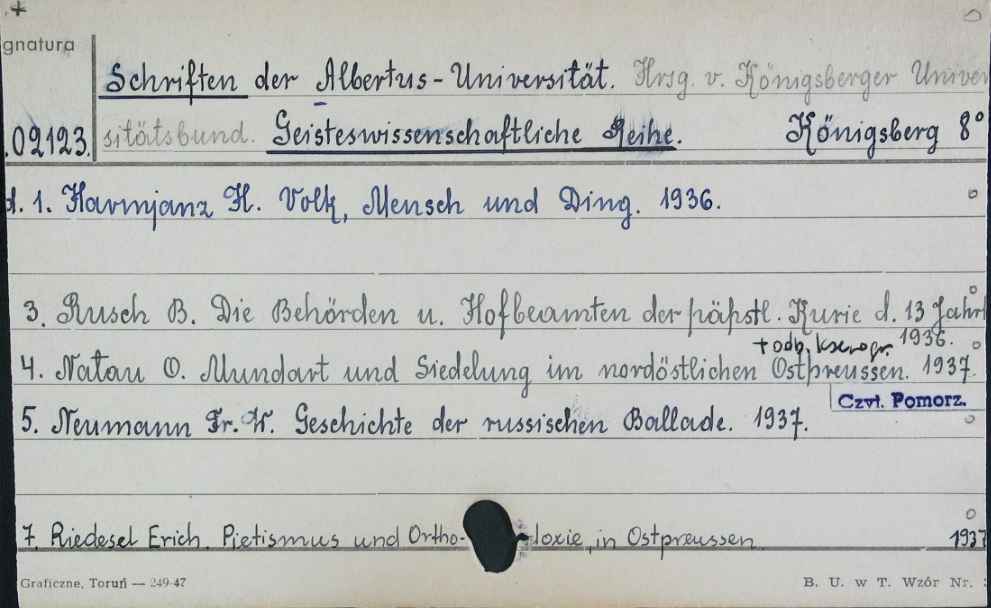 +
gnatura
Schriften der Albertus-Universität. Hrsg. v. Königsberger Univer
.02123. sitätsbund. Geisteswissenschaftliche Reihe. Königsberg 8°
d. 1. Harmjanz H. Volk, Mensch und Ding. 1936.
3. Rusch B. Die Behörden u. Hofbeamten der päpstl. Kurie d. 13 Jahrh
1936.
+ odb. kserogr.
4. Natau O. Mundart und Siedelung im nordöstlichen Ostpreussen. 1937.
Czyt. Pomorz.
5. Neumann Fr. W. Geschichte der russischen Ballade. 1937.
7. Riedesel Erich. Pietismus und Ortho-doxie in Ostpreussen 1937
Graficzne, Toruń — 249-47 B. U. w T. Wzór Nr.